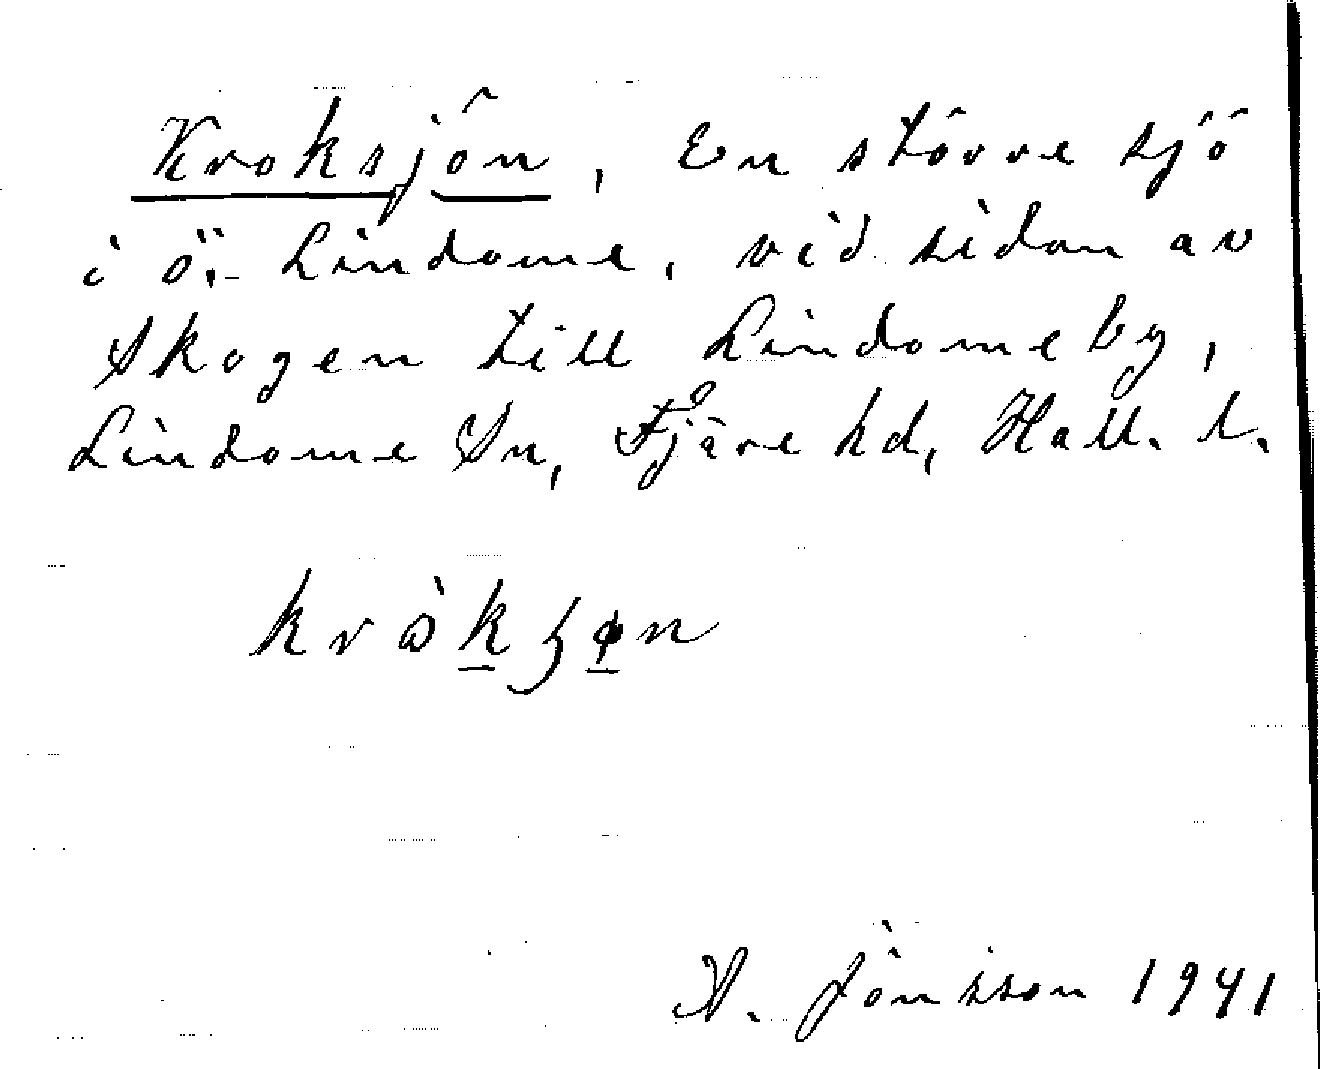 Kroksjön, En större sjö
i ö. Lindome, vid sidan av
Skogen till Lindome by,
Lindome Sn, Fjäre hd, Hall. l.
A. Jönsson 1941